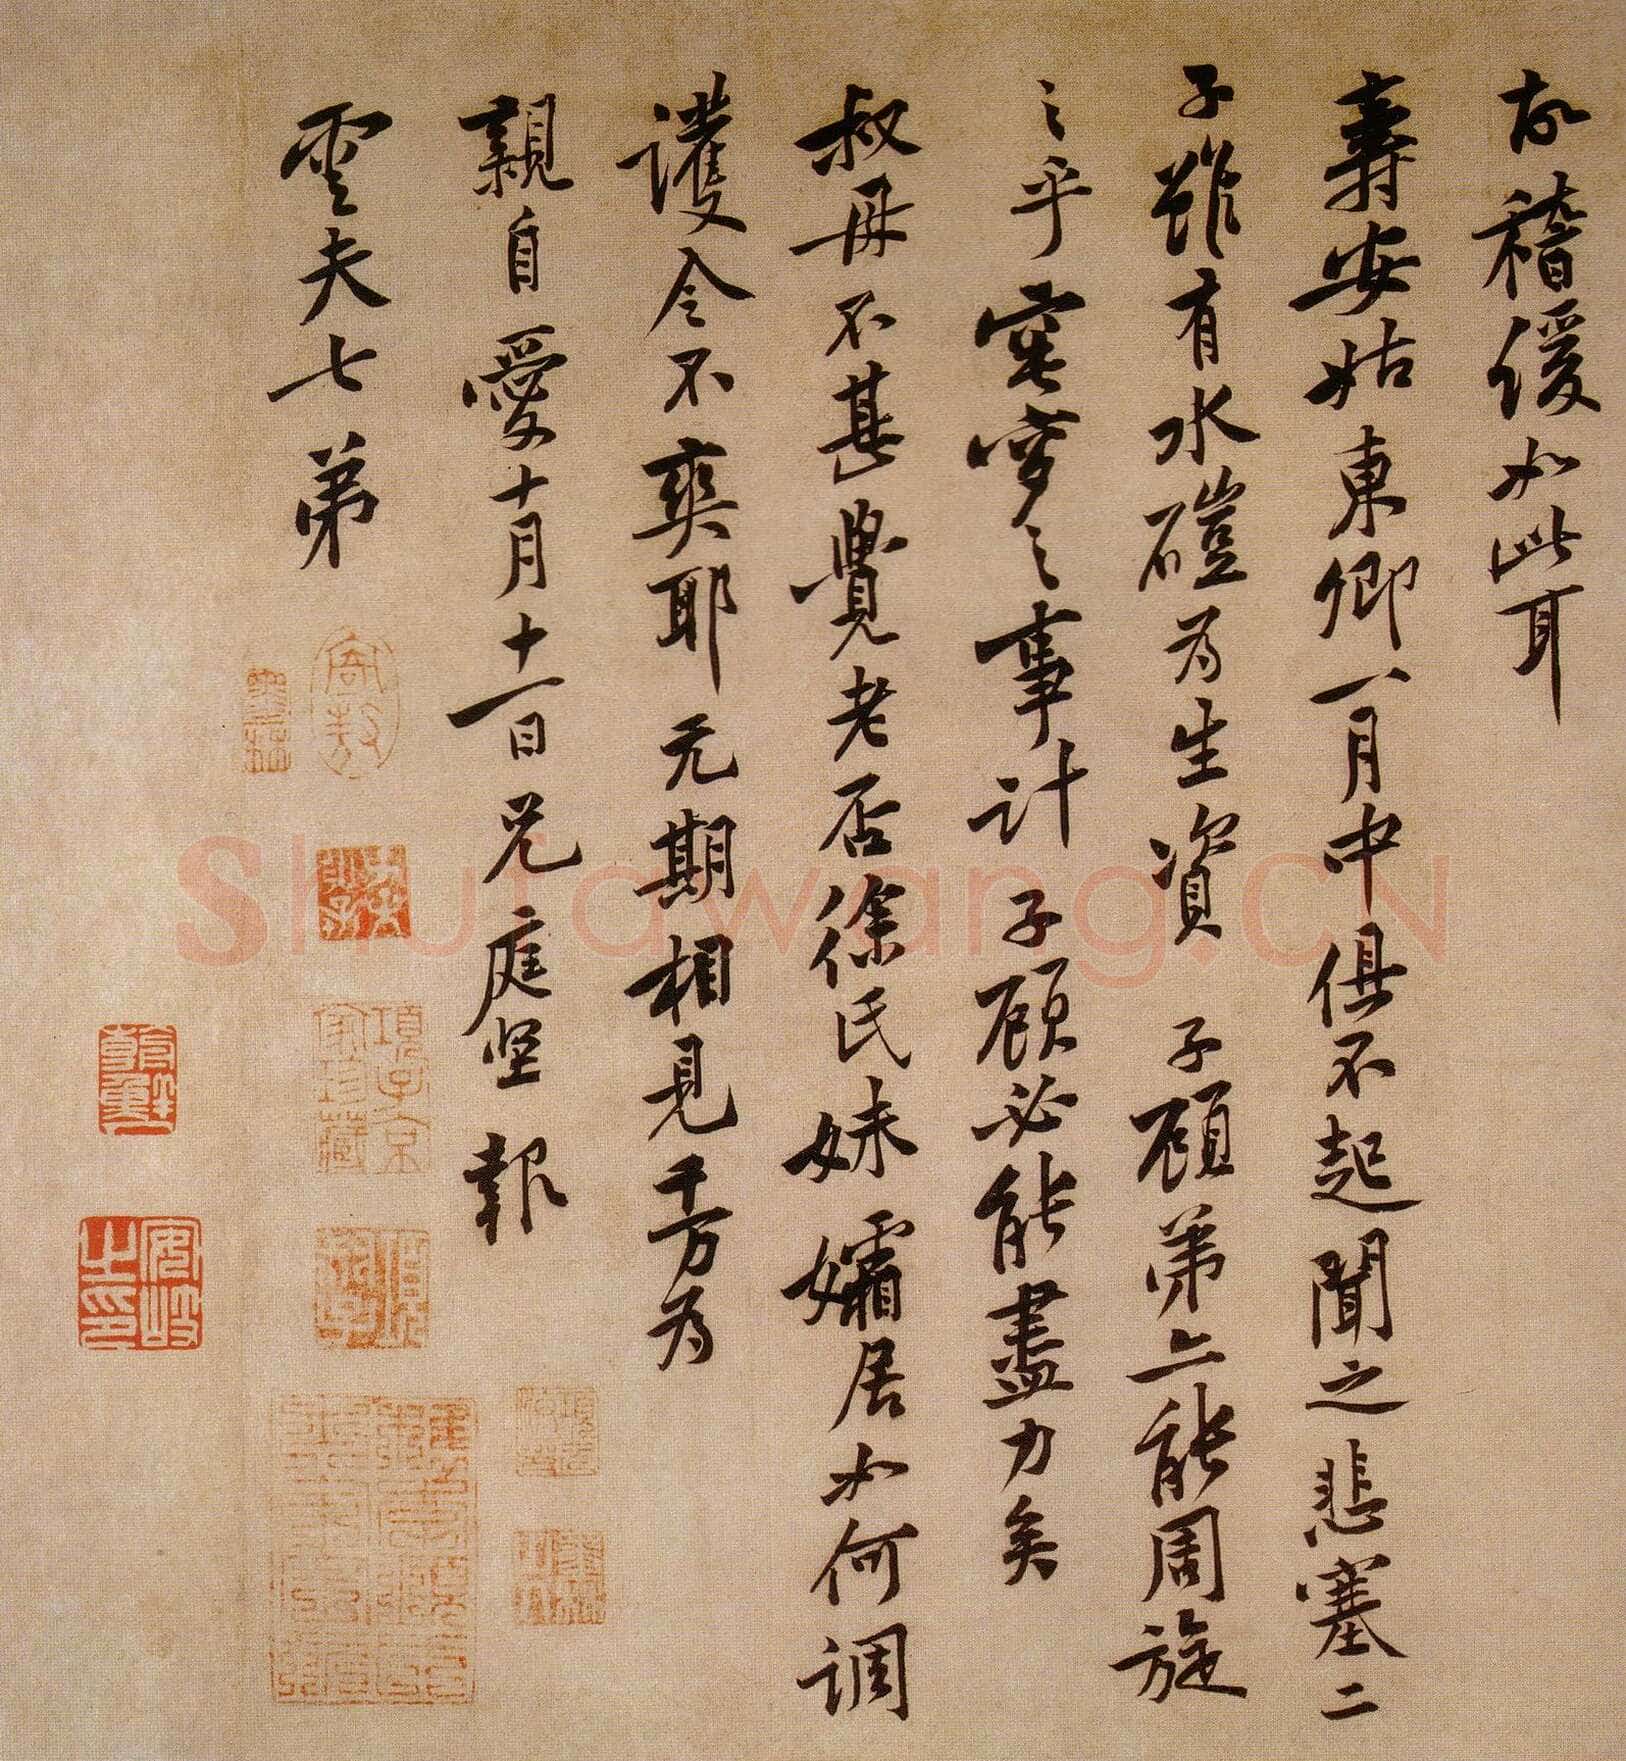 故稽缓如此耳
壽安姑東卿一月中俱不起聞之悲塞二
子雖有水磑為生資 子顧弟亦能周旋
之乎窀穸之事計 子顧必能盡力矣
叔母不甚覺老否徐氏妹孀居如何調
護令不爽耶元期相見千万为
親自愛十月十一日兄庭坚報
雲夫七弟
項子京
家珍藏
Shufawang.CN